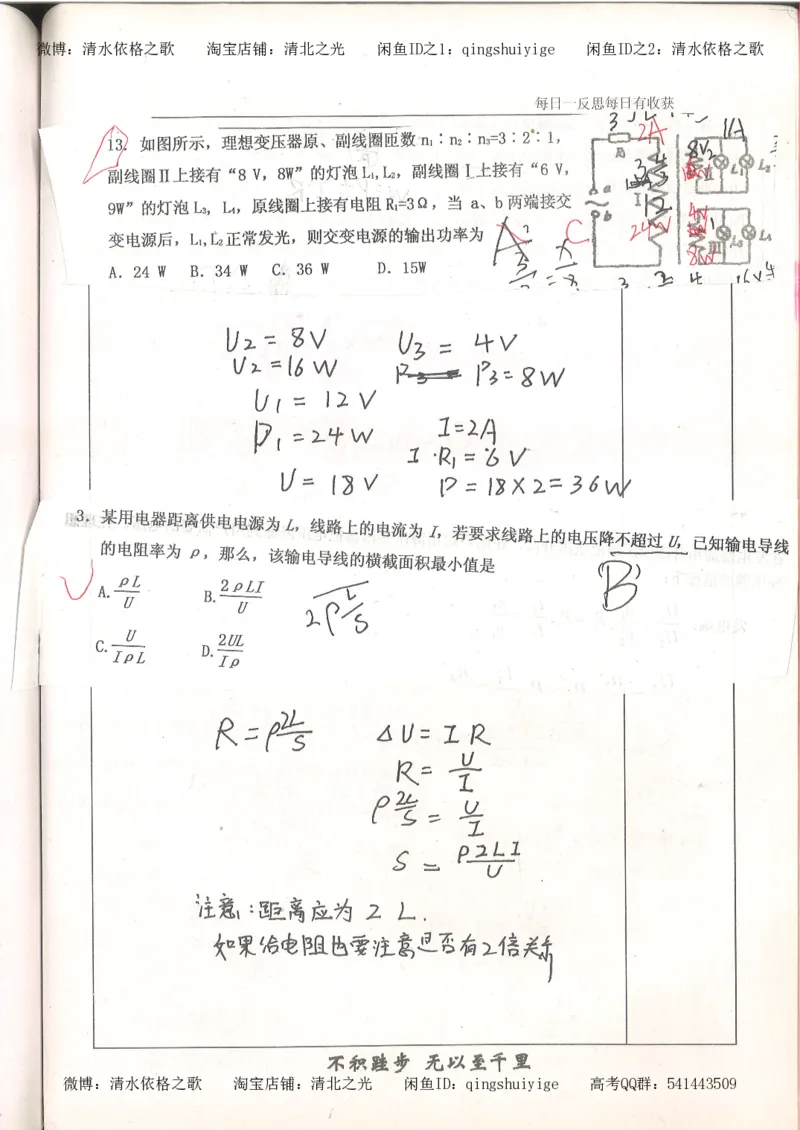 微博：清水依格之歌 淘宝店铺：清北之光 闲鱼ID之1：qingshuiyige 闲鱼ID之2：清水依格之歌
每日一反思每日有收获
13. 如图所示，理想变压器原、副线圈匝数 n₁：n₂：n₃=3：2：1，
副线圈Ⅱ上接有“8 V，8W”的灯泡 L₁,L₂，副线圈Ⅰ上接有“6 V，
9W”的灯泡 L₃，L₄，原线圈上接有电阻 R₁=3Ω，当 a、b 两端接交
变电源后，L₁,L₂正常发光，则交变电源的输出功率为
A．24 W B．34 W C．36 W D．15W
A
C
3
2A
a
b
I
12
24W
8V
1A
L₁
L₂
4V
8W
L₃
L₄
U₂ = 8V U₃ = 4V
U₂ = 16W P₃ = 8W
U₁ = 12V
P₁ = 24W I=2A
I·R₁ = 6V
U = 18V P = 18×2 = 36W
3．某用电器距离供电电源为 L，线路上的电流为 I，若要求线路上的电压降不超过 U，已知输电导线
的电阻率为 ρ，那么，该输电导线的横截面积最小值是
(B)
A. ρL/U B. 2ρLI/U
2ρL/S
C. U/IρL D. 2UL/Iρ
R = ρ2L/S ΔU = IR
R = U/I
ρ2L/S = U/I
S = ρ2LI/U
注意：距离应为 2L.
如果给电阻也要注意是否有2倍关系
不积跬步 无以至千里
微博：清水依格之歌 淘宝店铺：清北之光 闲鱼ID：qingshuiyige 高考QQ群：541443509